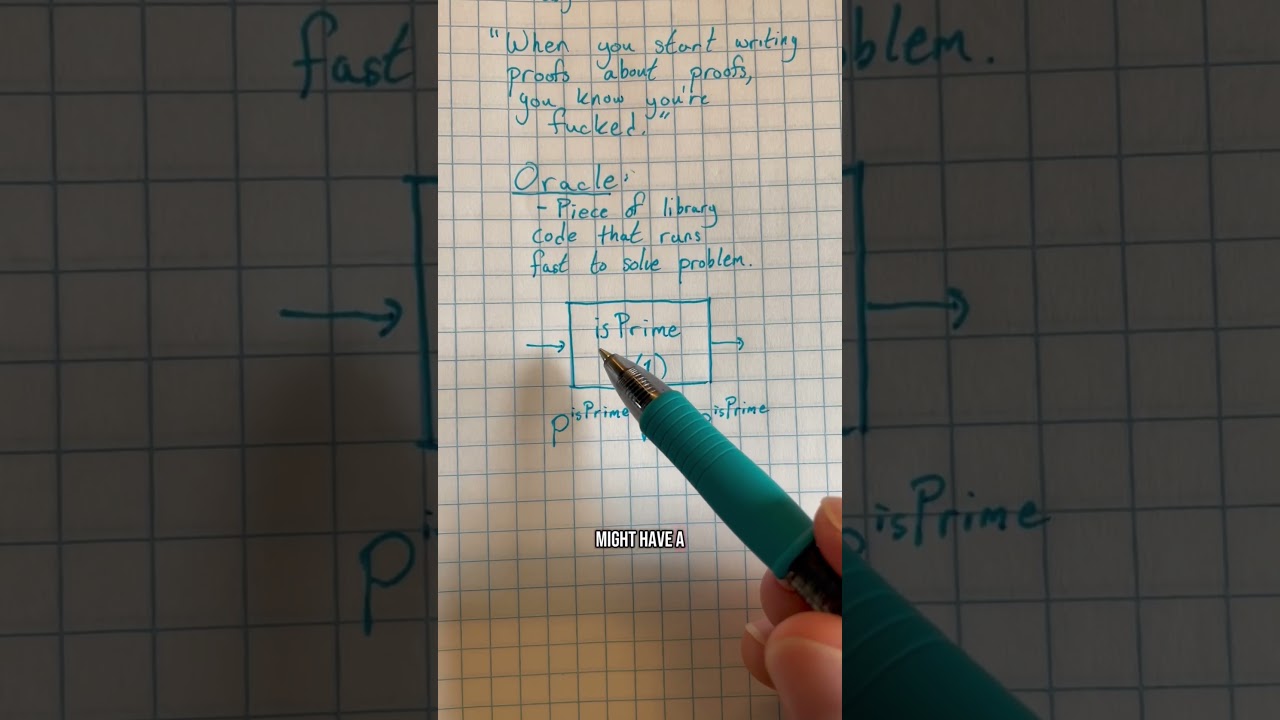 "When you start writing
proofs about proofs,
you know you're
fucked."
Oracle:
- Piece of library
code that runs
fast to solve problem.
isPrime
(1)
P isPrime
isPrime
MIGHT HAVE A
fast
oblem.
P
isPrime